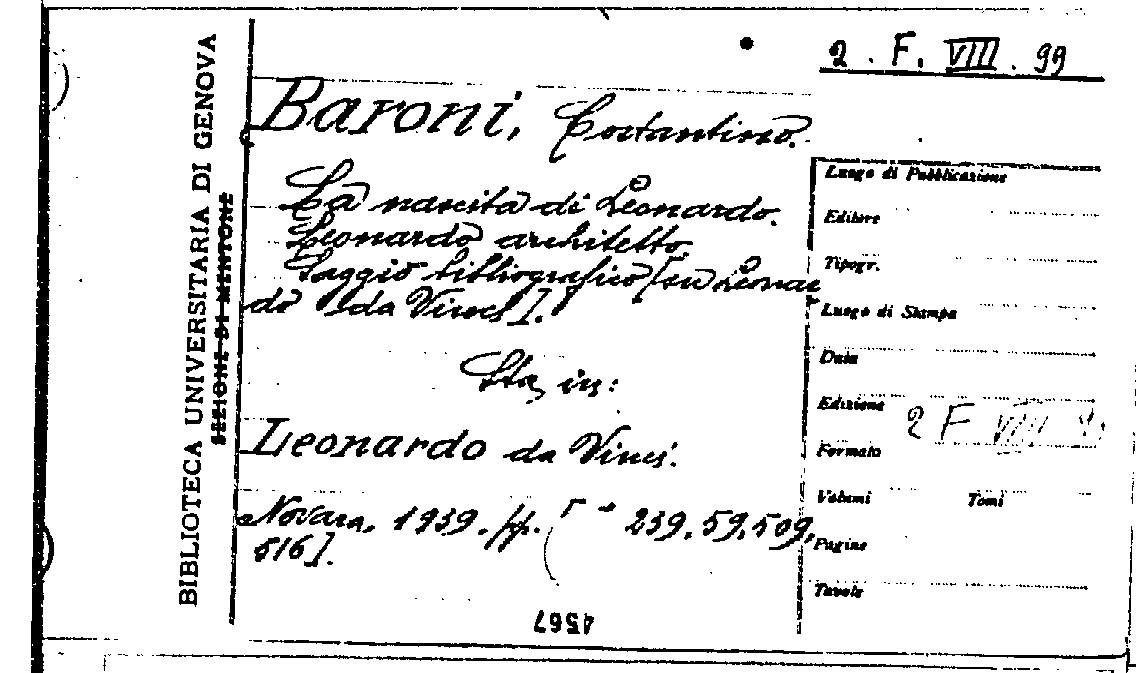 BIBLIOTECA UNIVERSITARIA DI GENOVA
SEZIONI DI MENTONE
2. F. VIII. 99
Baroni, Costantino.
La nascita di Leonardo.
Leonardo architetto.
Saggio bibliografico [su Leonar
do da Vinci].
Sta in:
Leonardo da Vinci.
Novara, 1939. pp. [ 239, 59, 509,
516].
4567
Luogo di Pubblicazione
Editore
Tipogr.
Luogo di Stampa
Data
Edizione
2 F VIII
Formato
Volumi Tomi
Pagine
Tavole